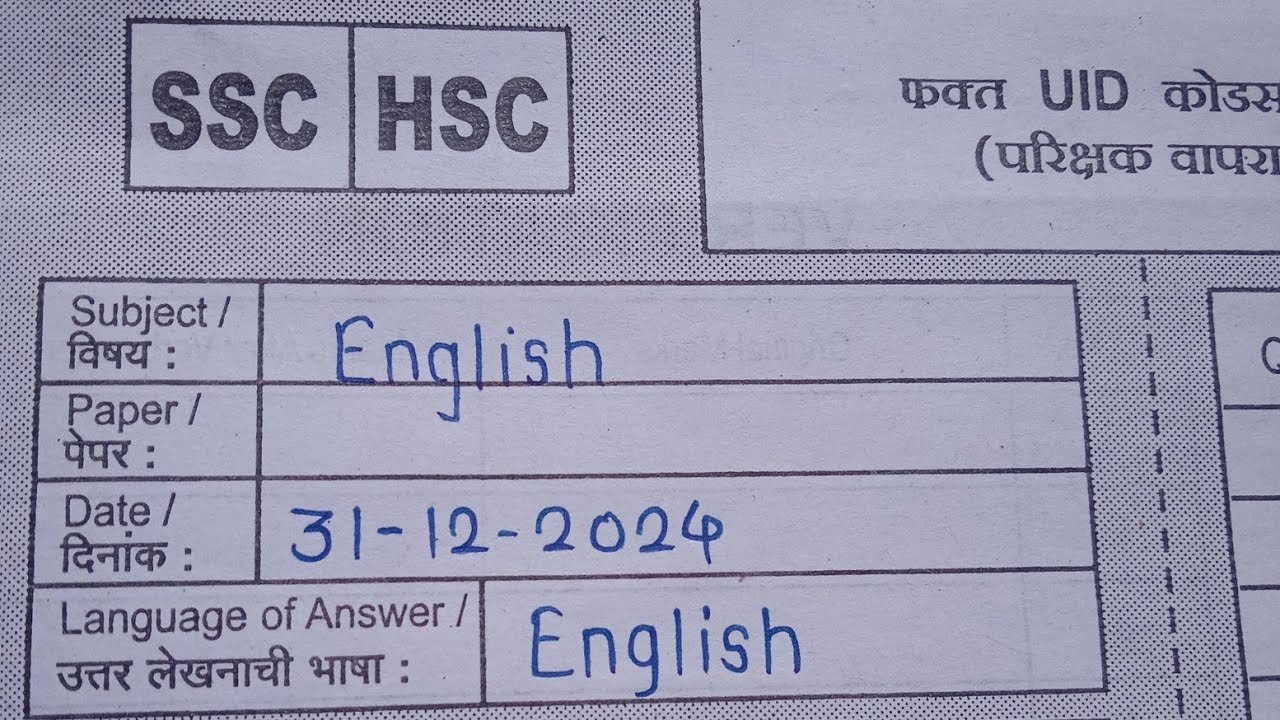 SSC HSC
फक्त UID कोडस
(परिक्षक वापरा
Subject / English
विषय :
Paper /
पेपर :
Date / 31-12-2024
दिनांक :
Language of Answer / English
उत्तर लेखनाची भाषा :